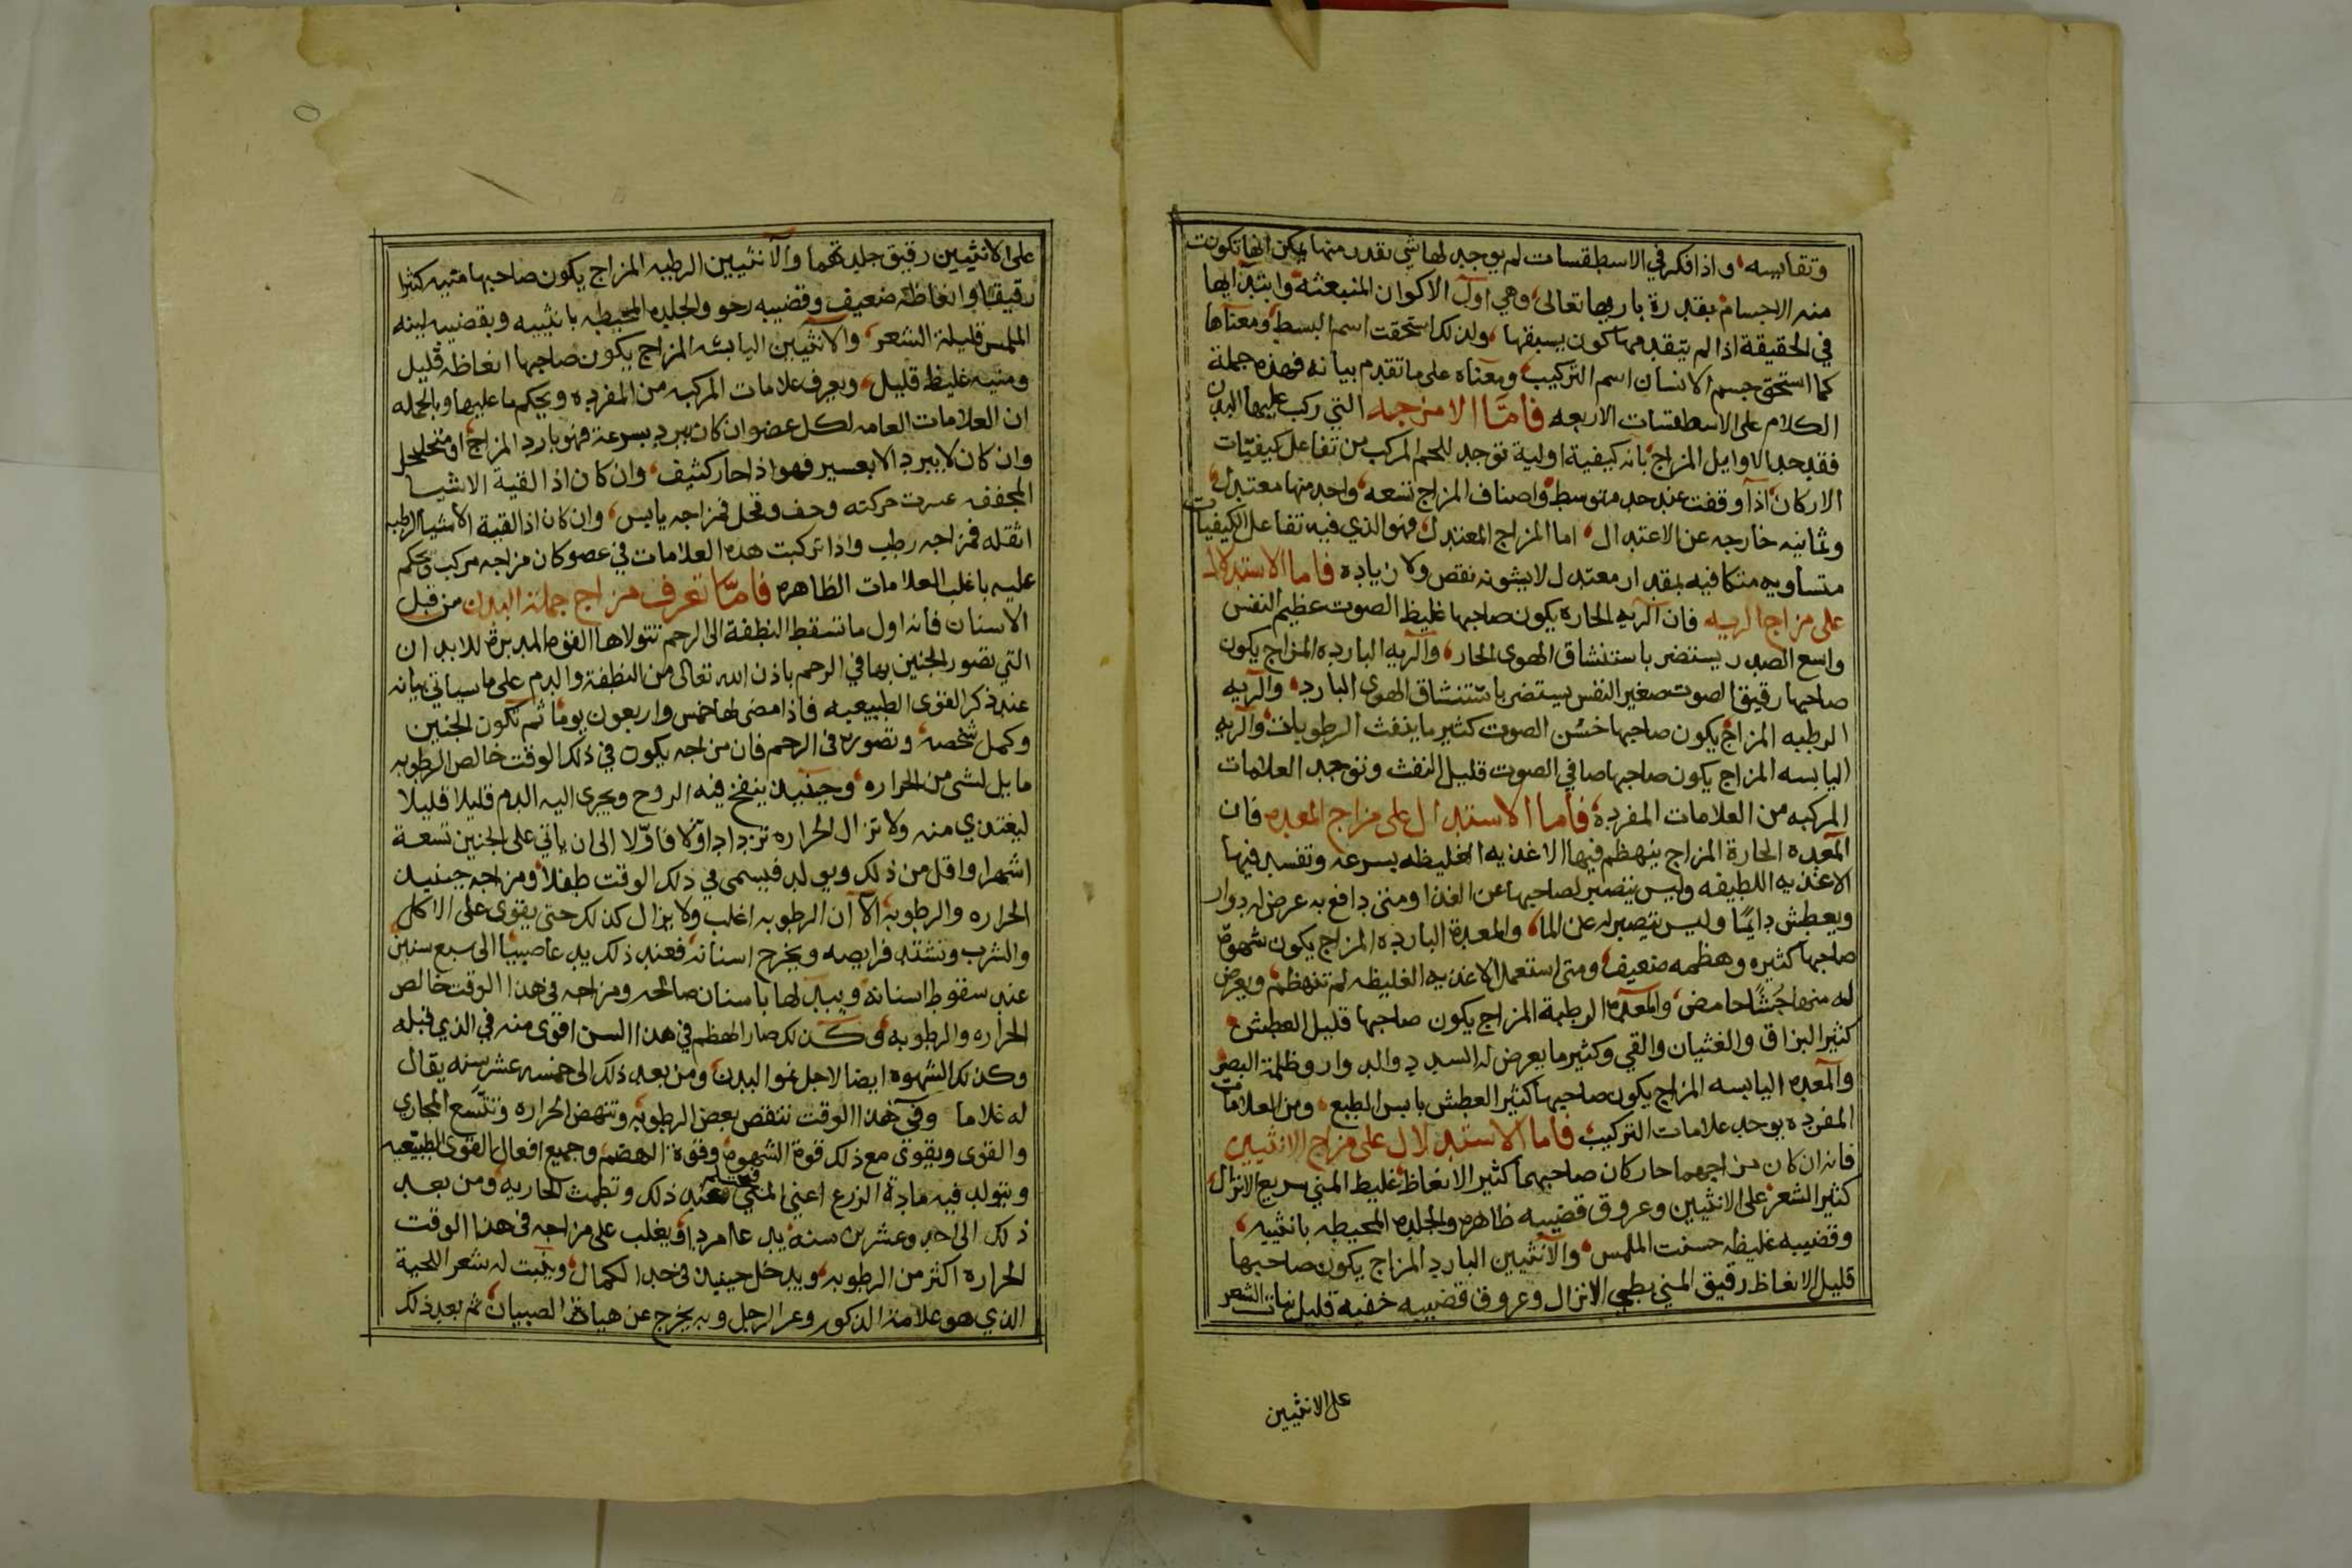 وتقابيسه، واذا فكر في الاسطقسات لم يوجد لها شي تقدر منها يمكن انها تكونت
منه الاجسام بقدرة باريها تعالى، وهي اول الاكوان المنبعثة وابتدايها
في الحقيقة اذا لم يتقدمها كون يسبقها، ولذلك استحقت اسم البسط ومعناها
كما استحق جسم الانسان اسم التركيب ومعناه على ما تقدم بيانه فهذه جملة
الكلام على الاسطقسات الاربعه فامّا الامزجه التي ركب عليها البدن
فقد حد الاوايل المزاج بانه كيفية اولية توجد للجسم المركب من تفاعل كيفيّات
الاركان اذا وقفت عند حد متوسط واصناف المزاج تسعه، واحد منها معتدل،
وثمانيه خارجه عن الاعتدال، اما المزاج المعتدل فهو الذي فيه تفاعل الكيفيات
متساويه متكافيه بمقدار معتدل لا يشونه نقص ولا زياده فاما الاستدلال
على مزاج الريه فان الريه الحاره يكون صاحبها غليظ الصوت عظيم النفس
واسع الصدر يستضر باستنشاق الهوى الحار، والريه البارده المزاج يكون
صاحبها رقيق الصوت صغير النفس يستضر باستنشاق الهوى البارد، والريه
الرطبه المزاج يكون صاحبها خشن الصوت كثير ما ينفث الرطوبات، والريه
اليابسه المزاج يكون صاحبها صافي الصوت قليل النفث وتوجد العلامات
المركبه من العلامات المفرده، فاما الاستدلال على مزاج المعده فان
المعده الحارة المزاج ينهظم فيها الاغذيه الغليظه بسرعه وتفسد فيها
الاغذيه اللطيفه وليس يتصبر لصاحبها عن الغذا ومتى دافع به عرض له دوار
ويعطش دايمًا وليس يتصبر له عن الما، والمعدة البارده المزاج يكون شهوة
صاحبها كثيره وهظمه ضعيف، ومتى استعمل الاغذيه الغليظه لم تنهظم، ويعرض
له منها جشًا حامض، والمعده الرطبة المزاج يكون صاحبها قليل العطش،
كثير البزاق والغثيان والقي وكثير ما يعرض له السدد والدوار وظلمة البصر
والمعده اليابسه المزاج يكون صاحبها كثير العطش يابس الطبع، ومن العلامات
المفرده يوجد علامات التركيب، فاما الاستدلال على مزاج الانثيين
فانه ان كان مزاجهما حار كان صاحبهما كثير الانعاظ غليظ المني سريع الانزال،
كثير الشعر على الانثيين وعروق قضيبه ظاهره والجلده المحيطه بانثييه،
وقضيبه غليظه حسنت الملمس، والانثيين البارد المزاج يكون صاحبها
قليل الانعاظ رقيق المني بطي الانزال وعروق قضيبه خفيه قليل نبات الشعر
على الانثيين
على الانثيين رقيق جلدتهما والانثيين الرطبه المزاج يكون صاحبها منيه كثيرا
رقيقا وانعاظه ضعيف وقضيبه رخو والجلده المحيطه بانثييه وبقضيبه لينه
الملمس قليلة الشعر، والانثيين اليابسه المزاج يكون صاحبها انعاظه قليل
ومنيه غليظ قليل، ويعرف علامات المركبه من المفرده ويحكم ما عليها وبالجمله
ان العلامات العامه لكل عضو ان كان يبرد بسرعة فهو بارد المزاج او متخلخل
وان كان لا يبرد الا بعسير فهو اذا حار كثيف، وان كان اذا لقية الاشيا
المجففه عسرت حركته وجف وقحل فمزاجه يابس، وان كان اذا لقية الاشيا الرطبه
اثقله فمزاجه رطب واذا تركبت هذه العلامات في عضو كان مزاجه مركب ويحكم
عليه باغلب العلامات الظاهره فامّا تعرف مزاج جملة البدن من قبل
الاسنان فانه اول ما تسقط النطفة الى الرحم تتولاها القوه المدبرة للابدان
التي تصور الجنين بها في الرحم باذن الله تعالى من النطفة والدم على ما سياتي بيانه
عند ذكر القوى الطبيعيه فاذا مضى لها خمس واربعون يومًا ثم تكون الجنين
وكمل شخصه، وتصوره في الرحم فان مزاجه يكون في ذلك الوقت خالص الرطوبه
مايل لشى من الحراره، وحينيذ ينفخ فيه الروح ويجرى اليه الدم قليلا قليلا
ليغتدي منه ولا تزال الحراره تزداد اوّلا فاوّلا الى ان ياتي على الجنين تسعة
اشهر او اقل من ذلك ويولد فيسمى في ذلك الوقت طفلا ومزاجه حينيذ
الحراره والرطوبه الا ان الرطوبه اغلب ولا يزال كذلك حتى يقوى على الاكل
والشرب وتشتد فرايصه ويخرج اسنانه فعند ذلك يدعا صبيا الى سبع سنين
عند سقوط اسنانه ويبدلها باسنان صالحه ومزاجه في هذا الوقت خالص
الحراره والرطوبه، وكذلك صار الهظم في هذا السن اقوى منه في الذي قبله
وكذلك الشهوه ايضا لاجل نمو البدن، ومن بعد ذلك الى خمسه عشر سنه يقال
له غلاما وفي هذا الوقت تنقص بعض الرطوبه وتنهض الحراره وتتسع المجاري
والقوى ويقوى مع ذلك قوة الشهوه وقوة الهضم وجميع افعال القوى الطبيعيه
ويتولد فيه مادة الزرع اعني المني فعند ذلك وتطمث الجاريه ومن بعد
ذلك الى احد وعشرين سنه يدعا امردا ويغلب على مزاجه في هذا الوقت
الحراره اكثر من الرطوبه، ويدخل حينيذ في حد الكمال، وينبت له شعر اللحية
الذي هو علامة الذكور وعز الرجل وبه يخرج عن هياة الصبيان، ثم بعد ذلك